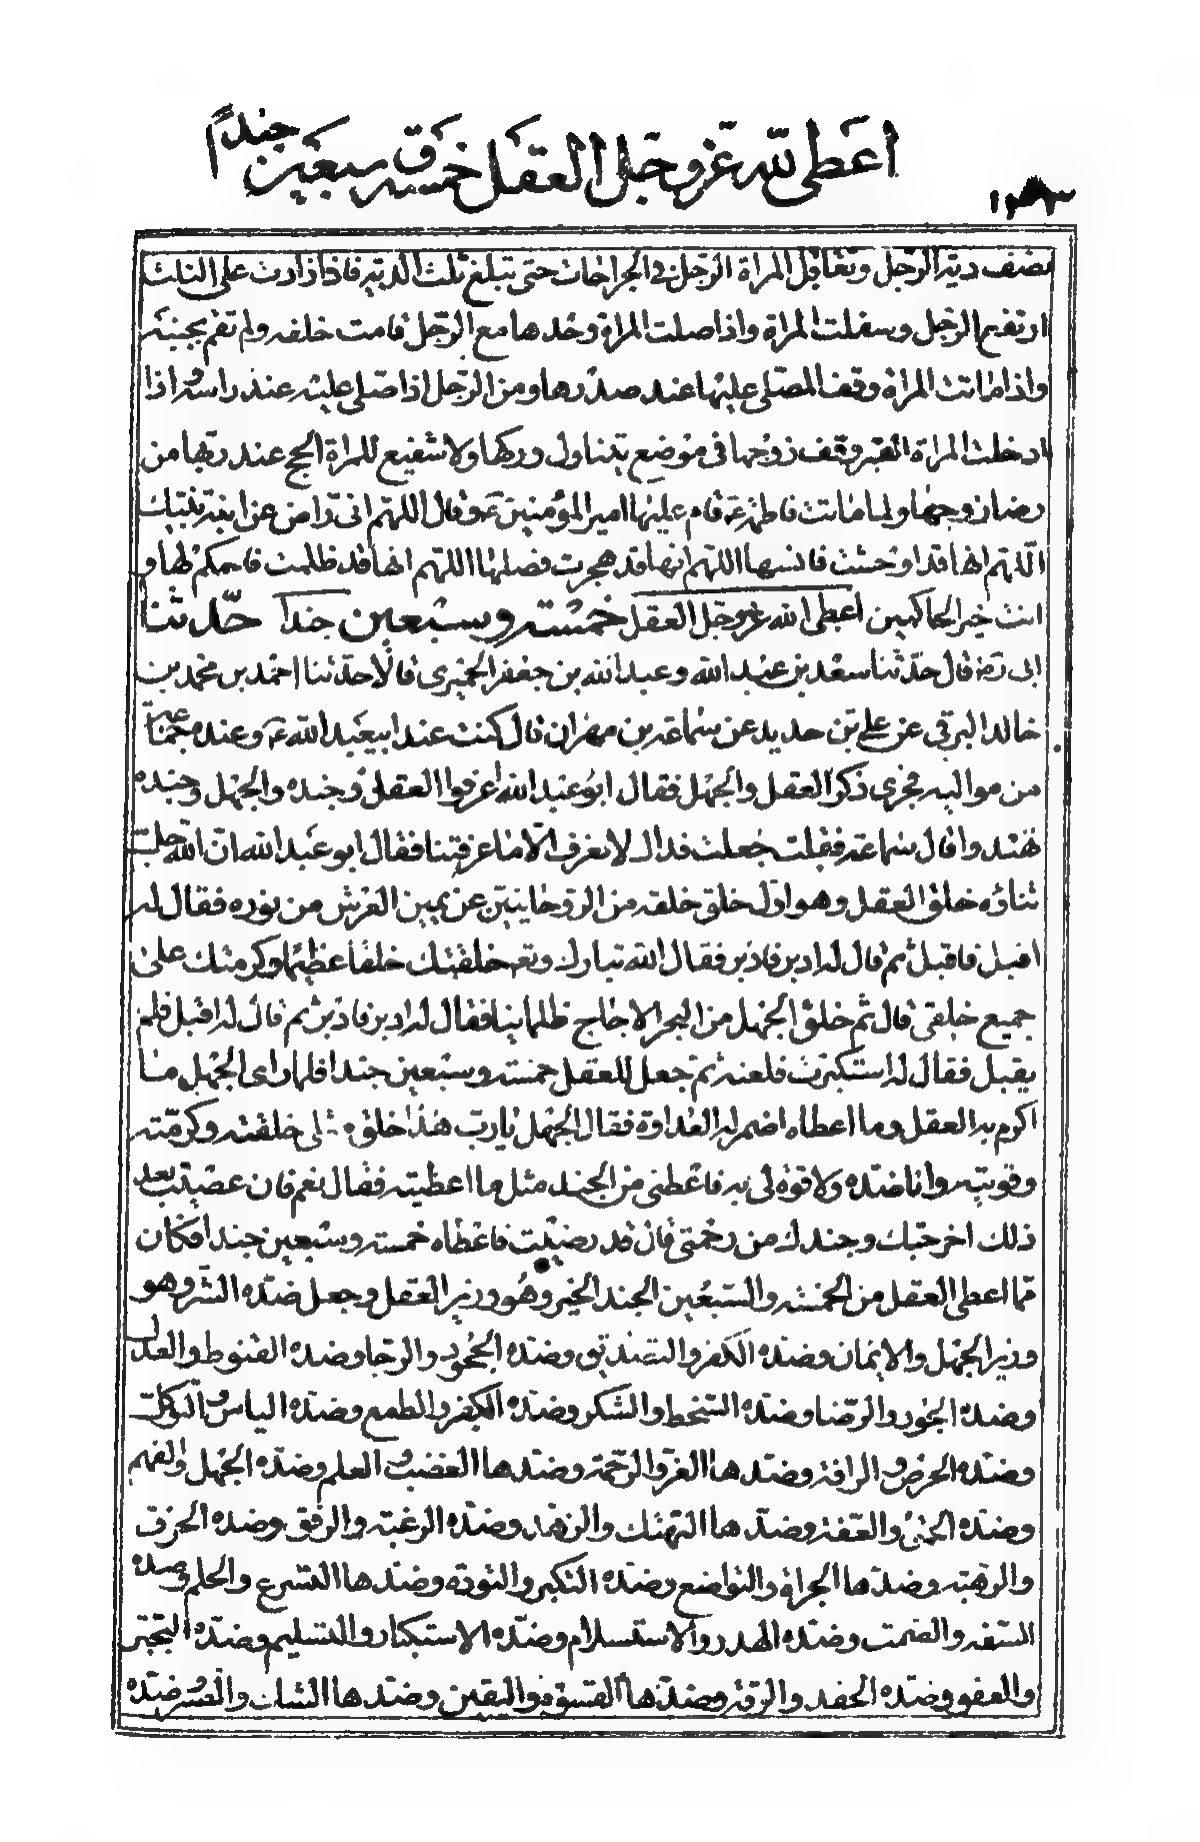 اعطى الله عز وجل العقل خمسة وسبعين جندا
نصف دية الرجل وتعاقل المراة الرجل في الجراحات حتى تبلغ ثلث الدية فاذا زادت على الثلث
ارتفع الرجل وسفلت المراة واذا صلت المراة وحدها مع الرجل قامت خلفه ولم تقم بجنبه
واذا ماتت المراة وقف المصلى عليها عند صدرها ومن الرجل اذا صلى عليه عند راسه واذا
ادخلت المراة القبر وقف زوجها في موضع يتناول وركها ولا شفيع للمراة انجح عند ربها من
رضا زوجها ولما ماتت فاطمة ع قام عليها امير المؤمنين ع وقال اللهم انى راض عن ابنة نبيك
اللهم انها قد اوحشت فانسها اللهم انها قد هجرت فصلها اللهم انها قد ظلمت فاحكم لها و
انت خير الحاكمين اعطى الله عز وجل العقل خمسة وسبعين جندا حدثنا
ابى رضه قال حدثنا سعد بن عبد الله وعبد الله بن جعفر الحميرى قالا حدثنا احمد بن محمد بن
خالد البرقى عن على بن حديد عن سماعة بن مهران قال كنت عند ابيعبد الله ع وعنده جماعة
من مواليه فجرى ذكر العقل والجهل فقال ابو عبد الله اعرفوا العقل وجنده والجهل وجنده
تهتدوا قال سماعة فقلت جعلت فداك لا نعرف الا ما عرفتنا فقال ابو عبد الله ان الله جل
ثناؤه خلق العقل وهو اول خلق خلقه من الروحانيين عن يمين العرش من نوره فقال له
اقبل فاقبل ثم قال له ادبر فادبر فقال الله تبارك وتع خلقتك خلقا عظيما وكرمتك على
جميع خلقى قال ثم خلق الجهل من البحر الاجاج ظلمانيا فقال له ادبر فادبر ثم قال له اقبل فلم
يقبل فقال له استكبرت فلعنه ثم جعل للعقل خمسة وسبعين جندا فلما راى الجهل ما
اكرم به العقل وما اعطاه اضمر له العداوة فقال الجهل يا رب هذا خلق مثلى خلقته وكرمته
وقويته وانا ضده ولا قوة لى به فاعطنى من الجند مثل ما اعطيته فقال نعم فان عصيت بعد
ذلك اخرجتك وجندك من رحمتى قال قد رضيت فاعطاه خمسة وسبعين جندا فكان
مما اعطى العقل من الخمسة والسبعين الجند الخير وهو وزير العقل وجعل ضده الشر وهو
وزير الجهل والايمان وضده الكفر والتصديق وضده الجحود والرجا وضده القنوط والعدل
وضده الجور والرضا وضده السخط والشكر وضده الكفر والطمع وضده الياس والتوكل
وضده الحرص والرافة وضدها الغرة والرحمة وضدها الغضب والعلم وضده الجهل والفهم
وضده الحمق والعفة وضدها التهتك والزهد وضده الرغبة والرفق وضده الخرق
والرهبة وضدها الجراة والتواضع وضده التكبر والتؤدة وضدها التسرع والحلم وضده
السفه والصمت وضده الهدر والاستسلام وضده الاستكبار والتسليم وضده التجبر
والعفو وضده الحقد والرقة وضدها القسوة واليقين وضدها الشك والصبر وضده